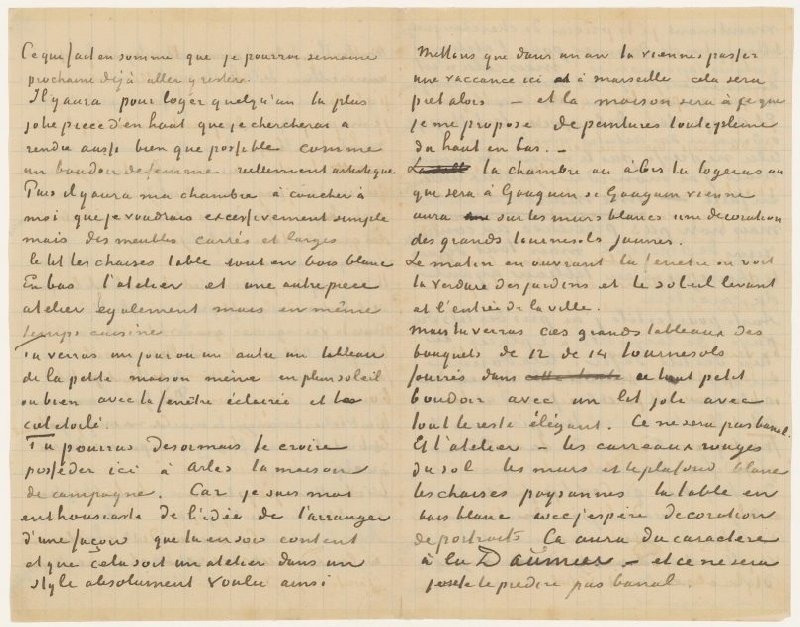 Ce qui fait en somme que je pourrai semaine
prochaine déjà aller y rester.
Il y aura pour loger quelqu'un la plus
jolie piece d'en haut que je chercherai a
rendre aussi bien que possible comme
un boudoir de femme reellement artistique
Puis il y aura ma chambre à coucher à
moi que je voudrais excessivement simple
mais des meubles carrés et larges
le lit les chaises table tout en bois blanc
En bas l'atelier et une autre piece
atelier egalement mais en même
temps cuisine
Tu verras un jour ou un autre un tableau
de la petite maison même en plein soleil
ou bien avec la fenêtre éclairée et le
ciel étoilé.
Tu pourras desormais te croire
posséder ici à Arles ta maison
de campagne. Car je suis moi
enthousiaste de l'idée de l'arranger
d'une façon que tu en sois content
et que cela soit un atelier dans un
style absolument voulu ainsi
Mettons que dans un an tu viennes passer
une vaccance ici et à marseille cela sera
pret alors – et la maison sera à ce que
je me propose de peintures toute pleine
du haut en bas. –
la chambre ou alors tu logeras ou
qui sera à Gauguin si Gauguin vienne
aura sur les murs blancs une decoration
des grands tournesols jaunes.
Le matin en ouvrant la fenêtre on voit
la verdure des jardins et le soleil levant
et l'entrée de la ville.
Mais tu verras ces grands tableaux des
bouquets de 12 de 14 tournesols
fourrés dans ce tout petit
boudoir avec un lit joli avec
tout le reste élégant. Ce ne sera pas banal.
Et l'atelier – les carreaux rouges
du sol les murs et le plafond blancs
les chaises paysannes la table en
bois blanc avec j'espère decoration
de portraits Ça aura du caractere
à la Daumier – et ce ne sera
j'ose te predire pas banal.